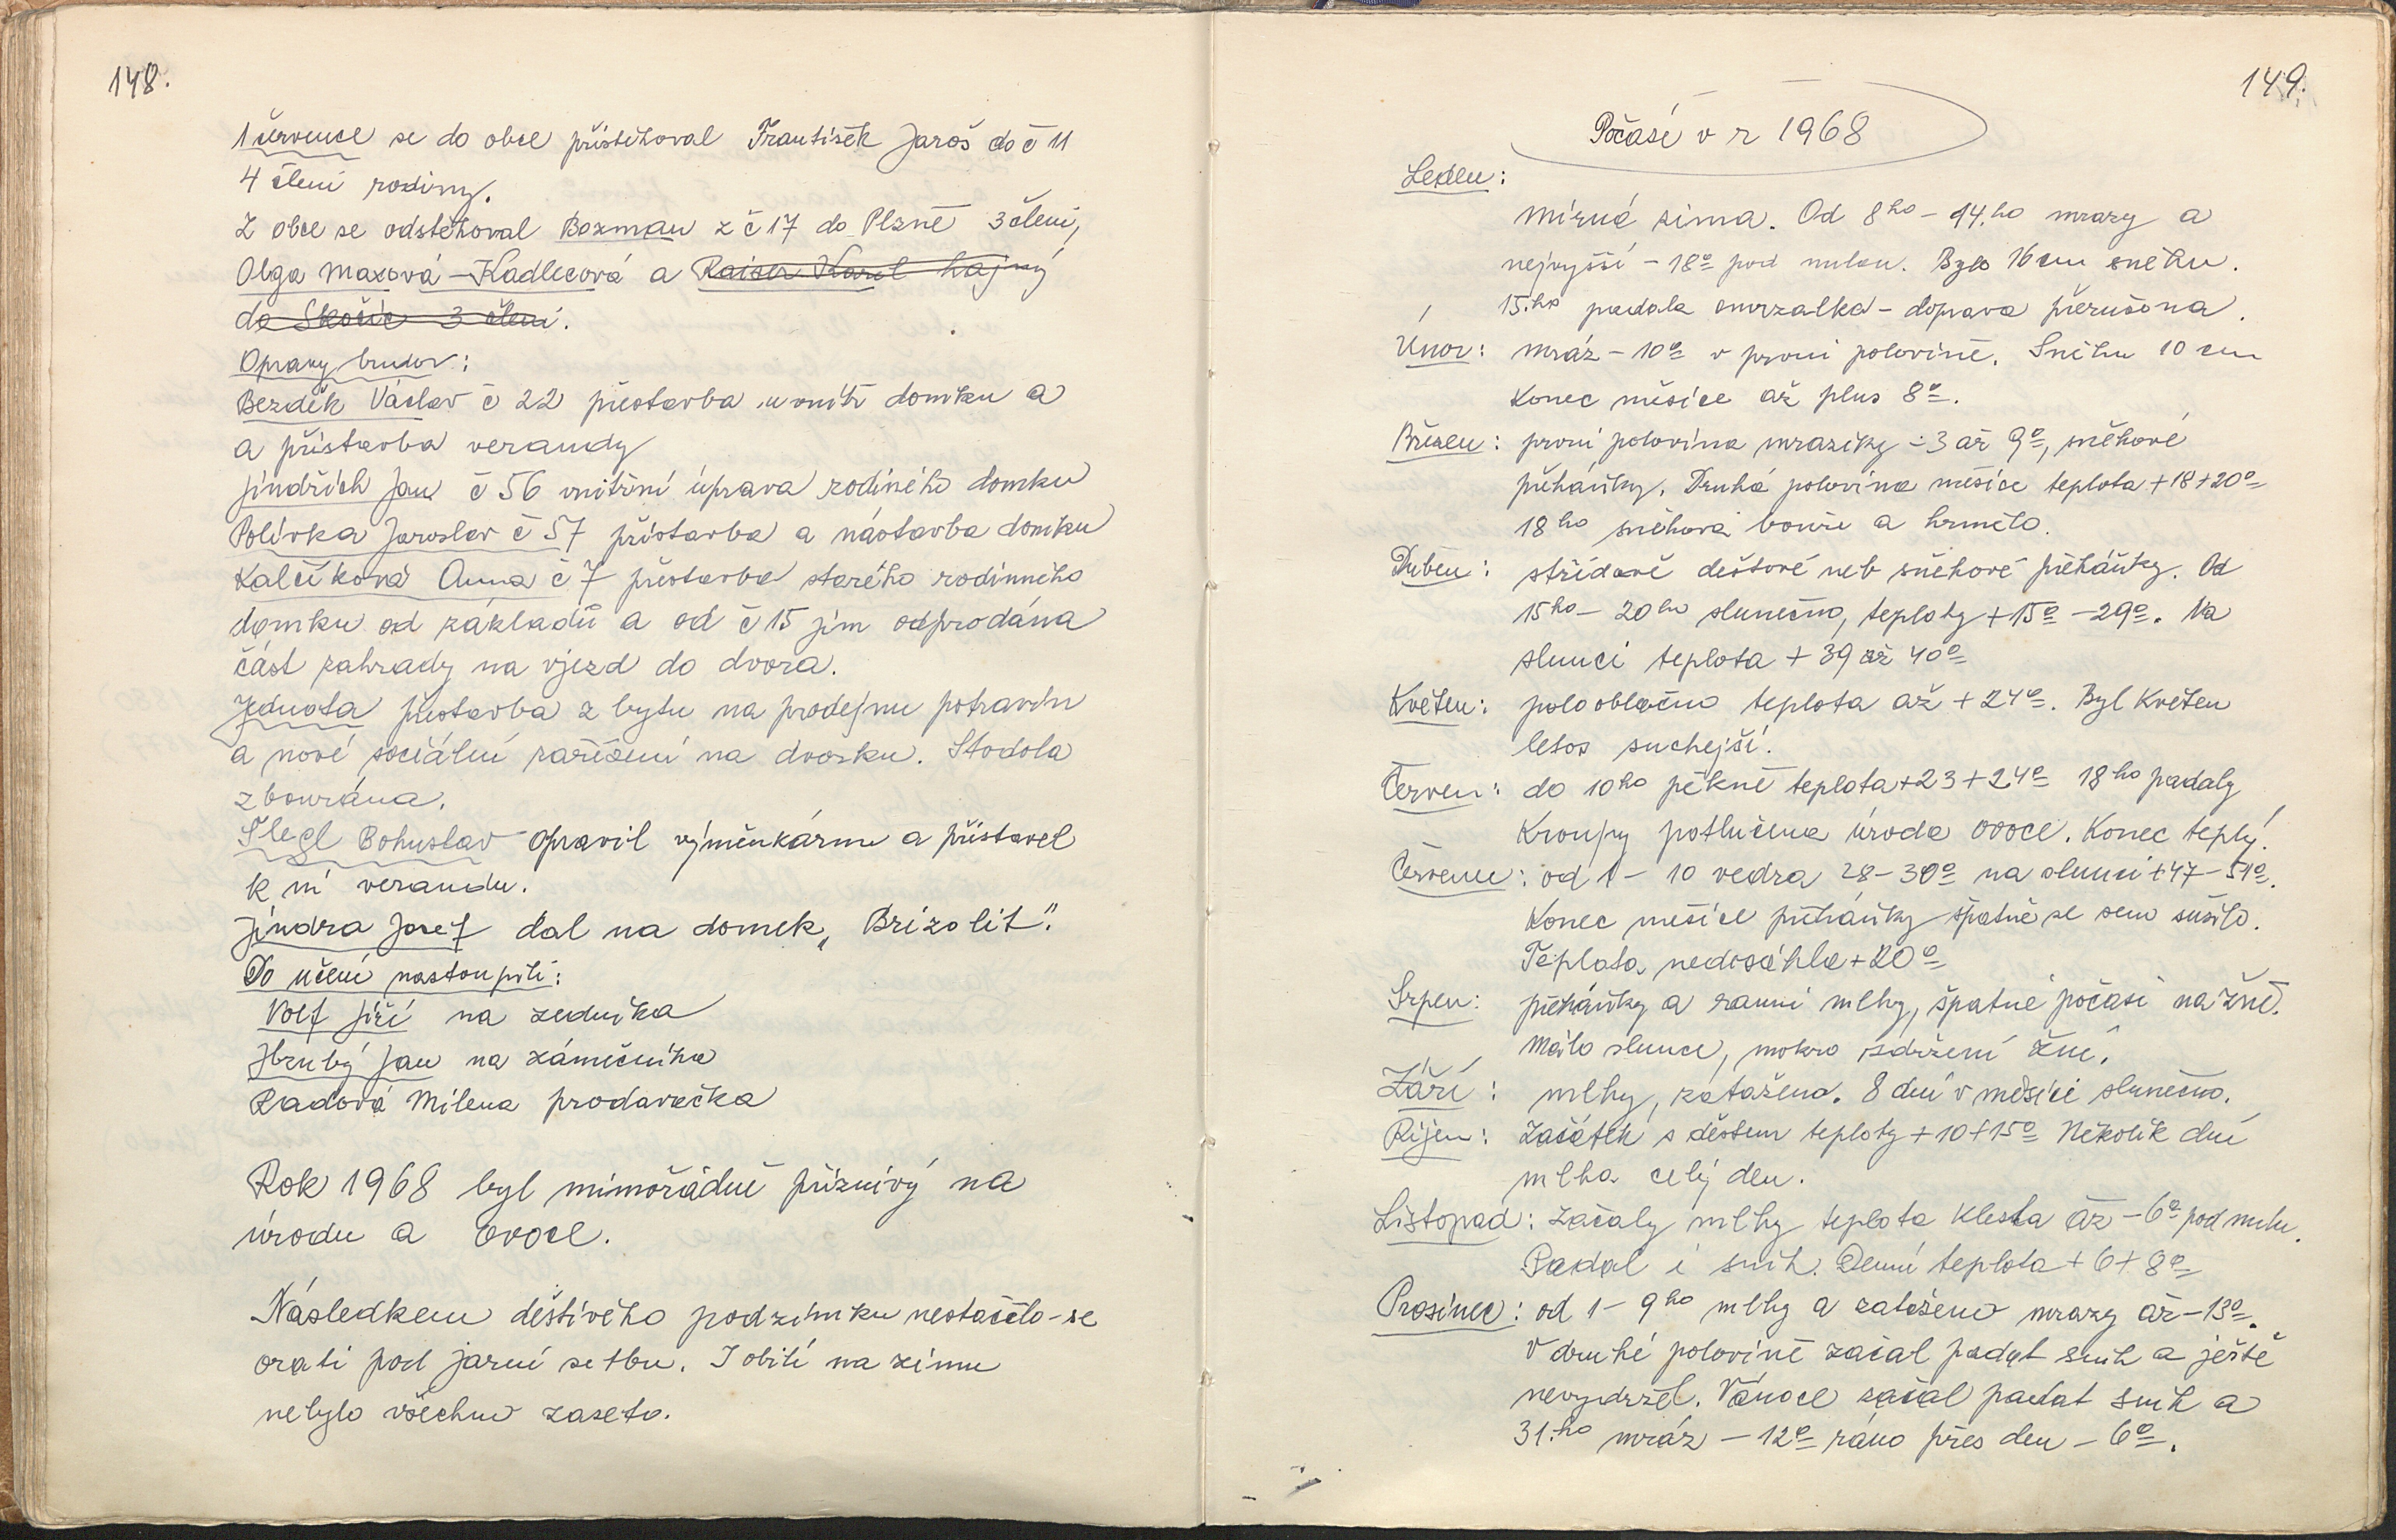 148.
1 července se do obce přistěhoval František Jaroš do č 11
4 členi rodiny.
Z obce se odstěhoval Boxman z č 17 do Plzně 3 členi,
Olga Maxová - Kadlecová a Raiser Karel hajný
do Skočic 3 členi.
Opravy budov:
Bezděk Václav č 22 přestavba uvnitř domku a
a přístavba verandy
Jindřich Jan č 56 vnitřní úprava rodiného domku
Polívka Jaroslav č 57 přístavba a nástavba domku
Kalčíková Anna č 7 přestavba starého rodinného
domku od základů a od č 15 jim odprodána
část zahrady na vjezd do dvora.
Jednota přestavba z bytu na prodejnu potravin
a nové sociální zařízení na dvorku. Stodola
zbourána.
Šlegl Bohuslav opravil výměnkárnu a přistavel
k ní verandu.
Jindra Josef dal na domek „Brizolit".
Do učení nastoupili:
Volf Jiří na zedníka
Hrubý Jan na zámečníka
Radová Milena prodavačka
Rok 1968 byl mimořádně příznivý na
úrodu a ovoce.
Následkem deštivého podzimku nestačilo-se
orati pod jarní setbu. I obilí na zimu
nebylo všechno zaseto.
149.
Počasí v r 1968
Leden:
mírná zima. Od 8ho - 14.ho mrazy a
nejvyšší - 18° pod nulou. Bylo 16 cm sněhu.
15.ho padala omrzalka - doprava přerušona.
Únor: mráz - 10° v prvni polovině. Sněhu 10 cm
Konec měsíce až plus 8°.
Březen: prvni polovina mraziky - 3 až 9°, sněhové
přeháňky. Druhá polovina měsíce teplota + 18 + 20°
18ho sněhová bouře a hrmělo.
Duben: střídavě deštové neb sněhové přeháňky. Od
15ho - 20ho slunečno, teploty + 15° - 29°. Na
slunci teplota + 39 až 40°
Květen: polooblačno teplota až + 24°. Byl Květen
letos suchejší.
Červen: do 10ho pěkně teplota + 23 + 24° 18ho padaly
Kroupy potlučena úroda ovoce. Konec teplý.
Červenec: od 1 - 10 vedra 28 - 30° na slunci + 47 - 51°.
Konec mešíce přeháňky špatně se seno sušilo.
Teplota nedosáhla + 20°
Srpen: přeháňky a ranní mlhy, špatné počasí na žně.
Málo slunce, mokro zdržení žní.
Září: mlhy, zataženo. 8 dní v měsíci slunečno.
Říjen: Začátek s deštem teploty + 10 + 15° Několik dní
mlha celý den.
Listopad: začaly mlhy teplota klesla až - 6° pod nulu.
Padal i snih. Denní teplota + 6 + 8°
Prosinec: od 1 - 9ho mlhy a zataženo mrazy až - 13°.
V druhé polovině začal padat snih a ještě
nevydržel. Vánoce začal padat snih a
31.ho mráz - 12° ráno přes den - 6°.